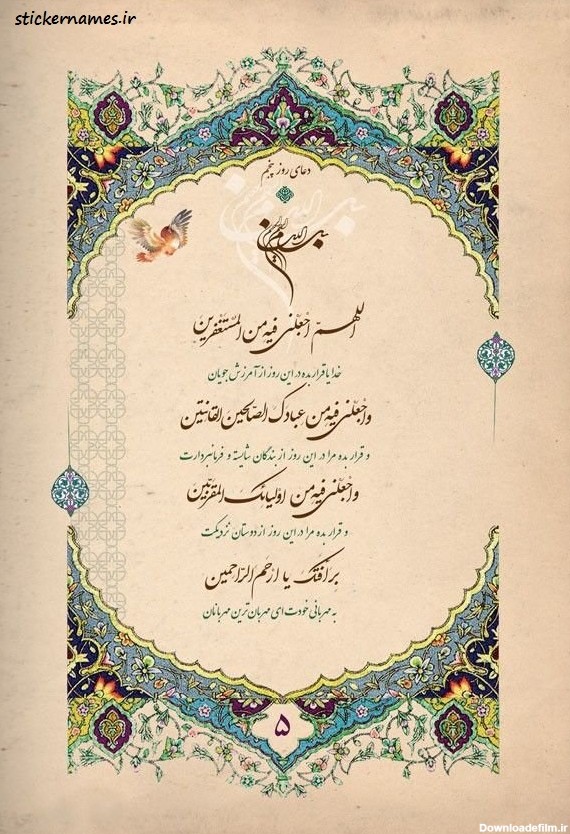 stickernames.ir
دعای روز پنجم
بسم الله الرحمن الرحیم
اللهم اجعلنی فیه من المستغفرین
خدایا قرار بده در این روز از آمرزش جویان
واجعلنی فیه من عبادک الصالحین القانتین
و قرار بده مرا در این روز از بندگان شایسته و فرمانبردارت
واجعلنی فیه من اولیائک المقربین
و قرار بده مرا در این روز از دوستان نزدیکت
برافتک یا ارحم الراحمین
به مهربانی خودت ای مهربان ترین مهربانان
۵
Downloadefilm.ir